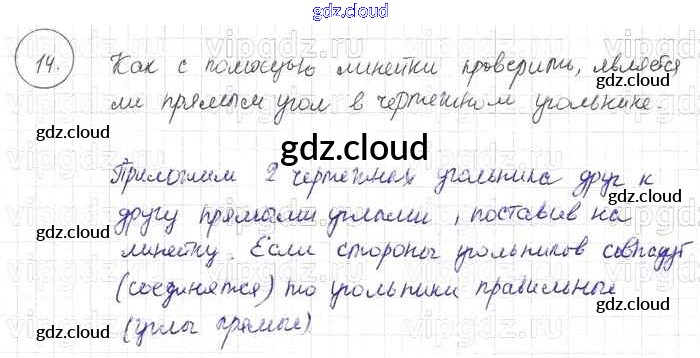 gdz.cloud
14. Как с помощью линейки проверить, является
ли прямым угол в чертежном угольнике.
gdz.cloud
gdz.cloud
gdz.cloud
Приложим 2 чертежных угольника друг к
другу прямыми углами, поставив на
gdz.cloud
gdz.cloud
линейку. Если стороны угольников совпадут
(соединятся) то угольники правильные
gdz.cloud
gdz.cloud
(углы прямые)